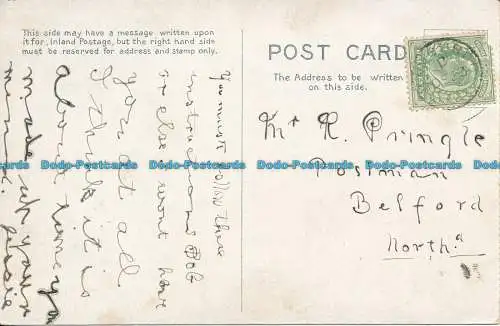 This side may have a message written upon
it for, Inland Postage, but the right hand side
must be reserved for address and stamp only.
You must follow these
instructions Bob
or else I wont have
you at all
I think it is
about time you
made up your
mind. Jessie
POST CARD
The Address to be written
on this side.
Mr R. Pringle
Postman
Belford
North^d
Dodo-Postcards Dodo-Postcards Dodo-Postcards Dodo-Postcards
Dodo-Postcards Dodo-Postcards Dodo-Postcards Dodo-Postcards